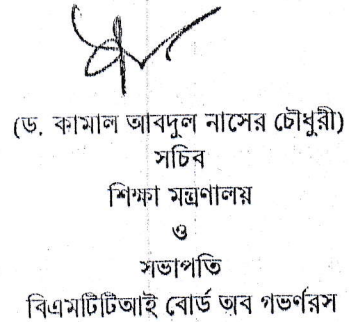 (ড. কামাল আবদুল নাসের চৌধুরী)
সচিব
শিক্ষা মন্ত্রণালয়
ও
সভাপতি
বিএমটিটিআই বোর্ড অব গভর্ণরস